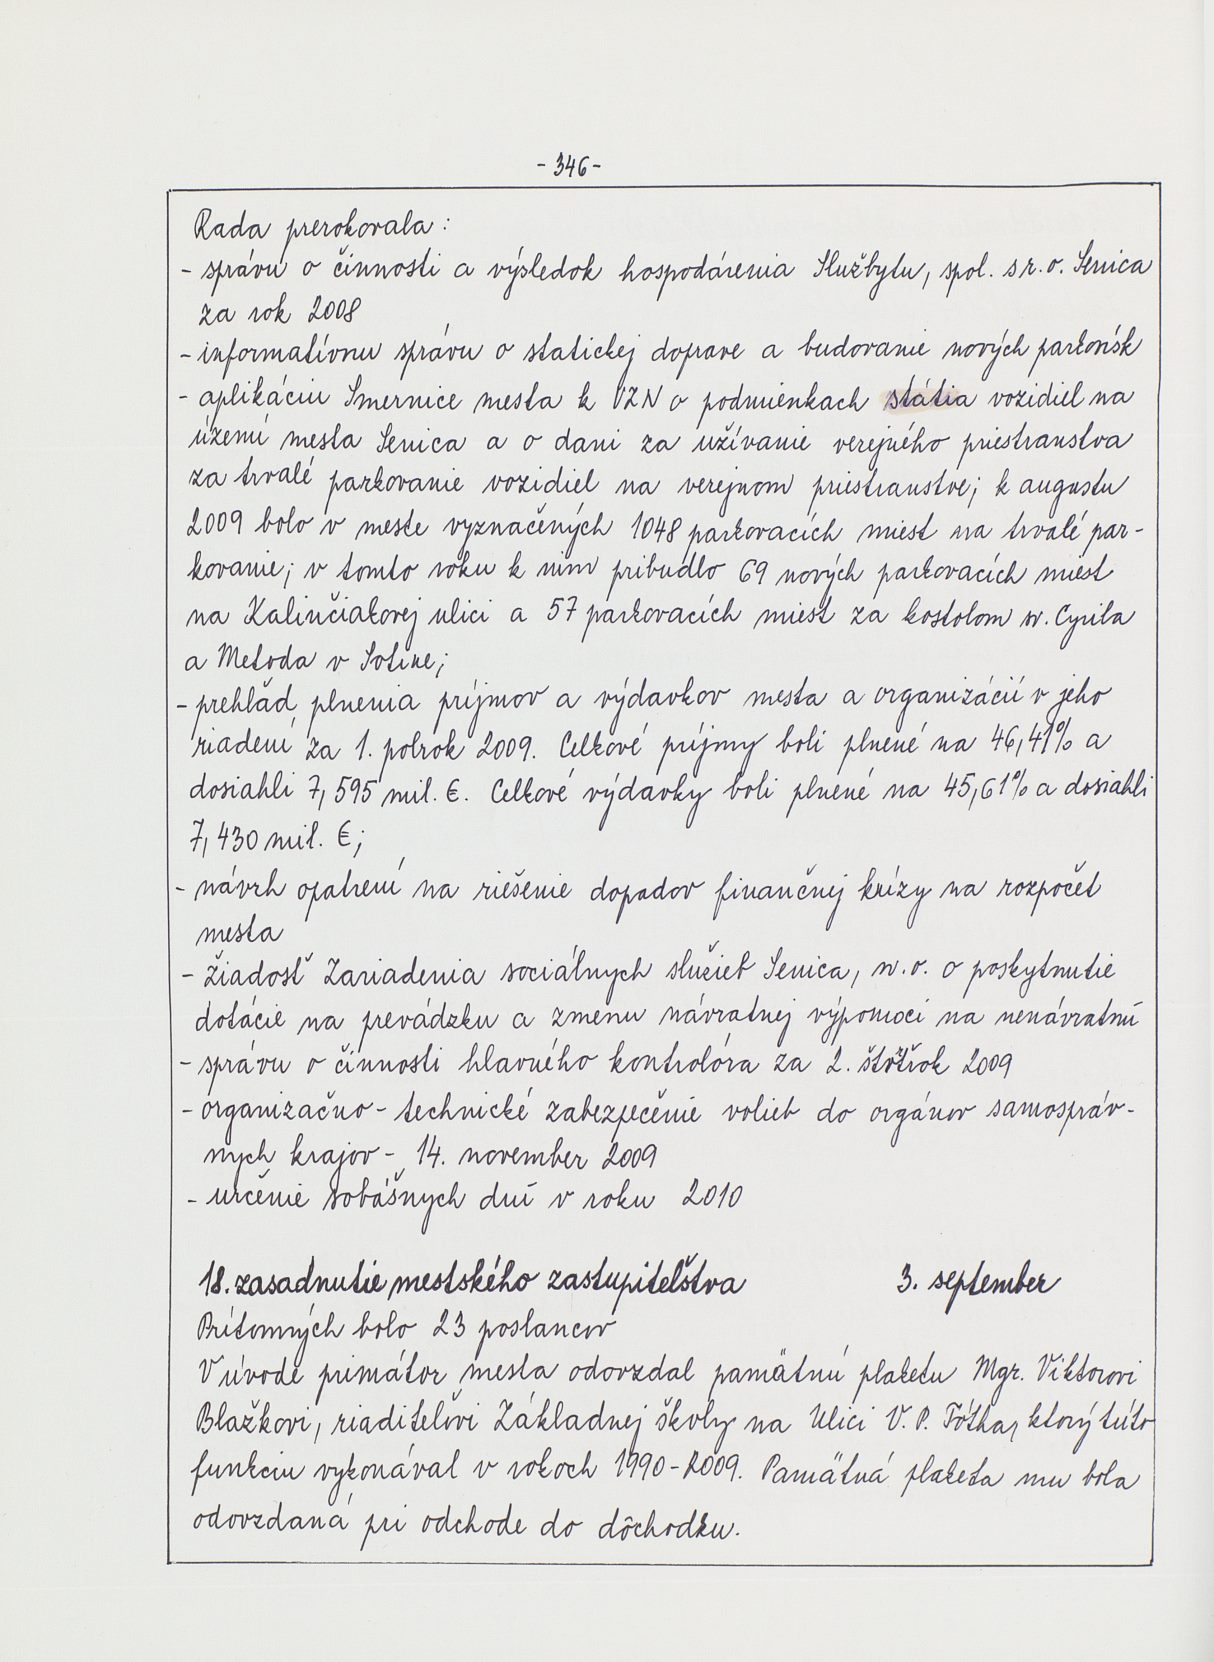 - 346 -
Rada prerokovala:
- správu o činnosti a výsledok hospodárenia Službytu, spol. s r. o. Senica
za rok 2008
- informatívnu správu o statickej doprave a budovanie nových parkovísk
- aplikáciu Smernice mesta k VZN o podmienkach státia vozidiel na
území mesta Senica a o dani za užívanie verejného priestranstva
za trvalé parkovanie vozidiel na verejnom priestranstve; k augustu
2009 bolo v meste vyznačených 1048 parkovacích miest na trvalé par-
kovanie; v tomto roku k nim pribudlo 69 nových parkovacích miest
na Kalinčiakovej ulici a 57 parkovacích miest za kostolom sv. Cyrila
a Metoda v Sotine;
- prehľad plnenia príjmov a výdavkov mesta a organizácií v jeho
riadení za 1. polrok 2009. Celkové príjmy boli plnené na 46,41% a
dosiahli 7,595 mil. €. Celkové výdavky boli plnené na 45,61% a dosiahli
7,430 mil. €;
- návrh opatrení na riešenie dopadov finančnej krízy na rozpočet
mesta
- žiadosť Zariadenia sociálnych služieb Senica, n. o. o poskytnutie
dotácie na prevádzku a zmenu návratnej výpomoci na nenávratnú
- správu o činnosti hlavného kontrolóra za 2. štvrťrok 2009
- organizačno - technické zabezpečenie volieb do orgánov samospráv-
nych krajov - 14. november 2009
- určenie sobášnych dní v roku 2010
18. zasadnutie mestského zastupiteľstva 3. september
Prítomných bolo 23 poslancov
V úvode primátor mesta odovzdal pamätnú plaketu Mgr. Viktorovi
Blažkovi, riaditeľovi Základnej školy na Ulici V. P. Tótha, ktorý túto
funkciu vykonával v rokoch 1990-2009. Pamätná plaketa mu bola
odovzdaná pri odchode do dôchodku.